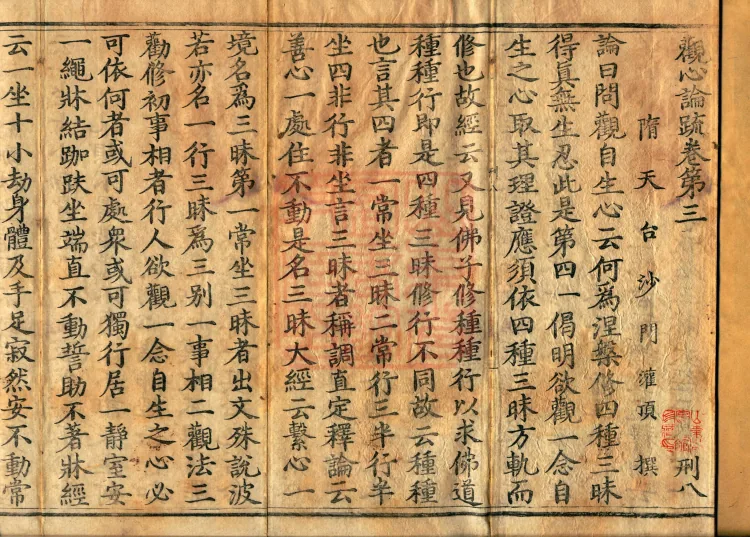 觀心論䟽卷第三
刑八
隋天台沙門灌頂撰
論曰問觀自生心云何為涅槃修四種三昧
得真無生忍此是第四一偈明欲觀一念自
生之心取其理證應須依四種三昧方軌而
修也故經云又見佛子修種種行以求佛道
種種行即是四種三昧修行不同故云種種
也言其四者一常坐三昧二常行三半行半
坐四非行非坐言三昧者稱調直定釋論云
善心一處住不動是名三昧大經云繫心一
境名為三昧第一常坐三昧者出文殊說波
若亦名一行三昧為三别一事相二觀法三
勸修初事相者行人欲觀一念自生之心必
可依何者或可處衆或可獨行居一靜室安
一繩牀結跏趺坐端直不動誓助不著牀經
云一坐十小劫身體及手足寂然安不動常